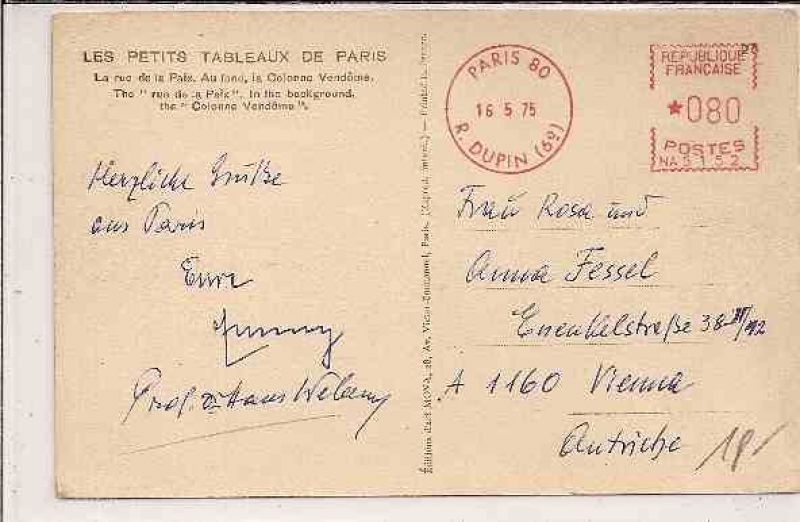 LES PETITS TABLEAUX DE PARIS
La rue de la Paix. Au fond, la Colonne Vendôme.
The "rue de la Paix". In the background,
the "Colonne Vendôme".
Herzliche Grüße
aus Paris
Eure
Prof. Dr Hans
Éditions d'art MONA, 28, Av. Victor-Emmanuel, Paris. (Reprod. interd.) — Printed in France.
PARIS 80
16 5 75
R. DUPIN (6e)
REPUBLIQUE
FRANÇAISE
*080
POSTES
NA 5152
Frau Rosa und
Anna Fessel
Enenkelstraße 38 III/12
A 1160 Vienna
Autriche